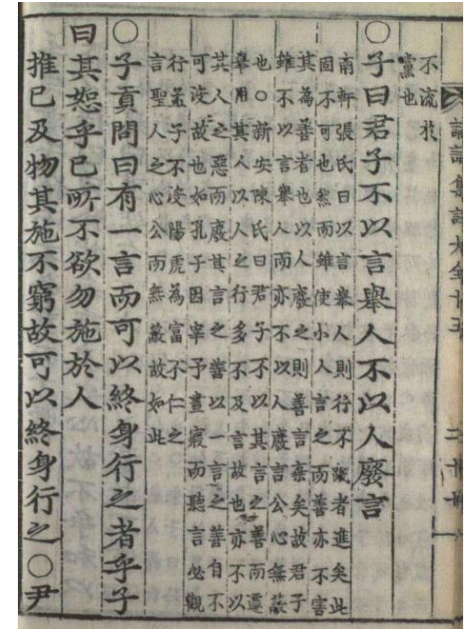 論語集註大全十五
不流於
黨也
○子曰君子不以言舉人不以人廢言
南軒張氏曰以言舉人則行不踐者進矣此
固不可也然而雖使小人言之而善亦不害
其為善者也以人廢之則善言棄矣故君子
雖不以言舉人而亦不以人廢言公心無蔽
也○新安陳氏曰君子不以其言之善而遽
舉用其人以人之行多不及言故也亦不以
其人之惡而廢其言之善以一言之善自不
可沒故也如孔子因宰予晝寢而聽言必觀
行孟子不沒陽虎為富不仁之
言聖人之心公而無蔽故如此
○子貢問曰有一言而可以終身行之者乎子
曰其恕乎己所不欲勿施於人
推己及物其施不窮故可以終身行之○尹